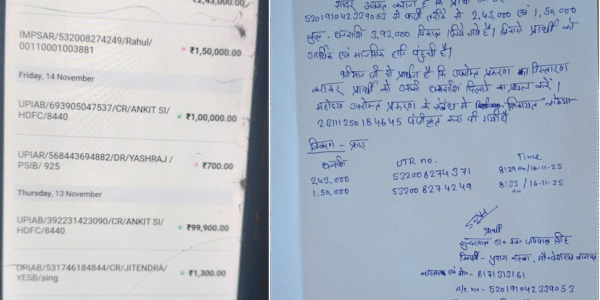 ₹2,43,000.00
IMPSAR/532008274249/Rahul/
00110001003881
₹1,50,000.00
Friday, 14 November
UPIAB/693905047537/CR/ANKIT SI/
HDFC/8440
₹1,00,000.00
UPIAR/568443694882/DR/YASHRAJ /
PSIB/ 925
₹700.00
Thursday, 13 November
UPIAB/392231423090/CR/ANKIT SI/
HDFC/8440
₹99,900.00
UPIAB/531746184844/CR/JITENDRA/
YESB/sing
₹1,300.00
520191042339053 से फर्जी तरीके से 2,43,000 एवं 1,50,000
कुल - धनराशि 3,93,000 निकाल लिये गये है। जिससे प्रार्थी को
आर्थिक एवं मानसिक हानि पहुंची है।
श्रीमान जी से प्रार्थना है कि उपरोक्त प्रकरण का
प्रार्थी की उसकी धनराशि दिलाने का करें।
महोदय उपरोक्त प्रकरण के संबंध में शिकायत संख्या
20111250184645 पंजीकृत करा दी गयी है
विवरण - फ्राड
धनराशि UTR no. Time
243,000 532008274371 8:29 /16-11-25
1,50,000 532008274249 8:33 /16-11-25
प्रार्थी
मो० - 8171313161
A/c no - 520191042339053